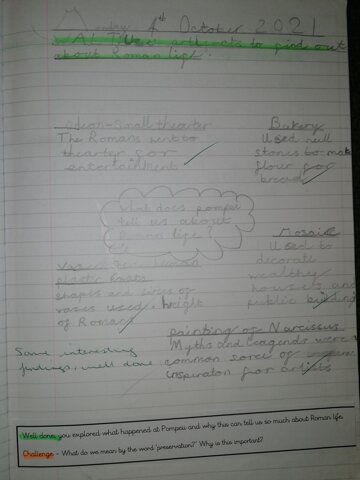 Monday 4th October 2021
WALT: Use artifacts to find out
about Roman life.
odeon-Small thearter
The Romans went to
thearter for
entertainment
Bakery
Used mill
stones to make
flour for
bread
What does pompei
tell us about
Roman life?
Mosaic
Used to
decorate
wealthy
houses and
public building
Vases
plastic
shapes and sizes of
vases used. height
of Romans
Some interesting
findings, well done
painting of Narcussus
Myths and leagends were
common sorce of
inspiraton for artists
Well done, you explored what happened at Pompeii and why this can tell us so much about Roman life.
Challenge - What do we mean by the word 'preservation?' Why is this important?